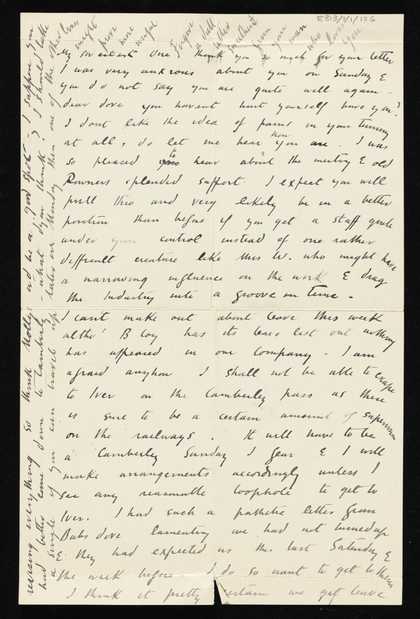 My sweetest One Thank you so much for your letter
I was very anxious about you on Sunday &
you do not say you are quite well again.
dear dove you havent hurt yourself have you?
I dont like the idea of pains in your tummy
at all, do let me hear how you are. I was
so pleased to hear about the meeting & old
Rowners splendid support. I expect you will
pull this and very likely be in a better
position than before if you get a staff quite
under your control instead of one rather
difficult creature like Miss W. who might have
a narrowing influence on the work & drag
the Industry into a groove in time.
I cant make out about leave this week
altho' B Coy has its leave list out nothing
has appeared in our Company. I am
afraid anyhow I shall not be able to
to Iver on the Camberley pass as there
is sure to be a certain amount of supervision
on the railways. It will have to be
a Camberley Sunday I fear & I will
make arrangements accordingly unless I
see any reasonable loophole to get to
Iver. I had such a pathetic letter from
Babs dove lamenting we had not turned up
& they had expected us the last Saturday &
the week before I do so want to get to them
I think it pretty certain we get leave
reviewing everything I so think Mollys
had better come down to Camberley
a single if you can travel up